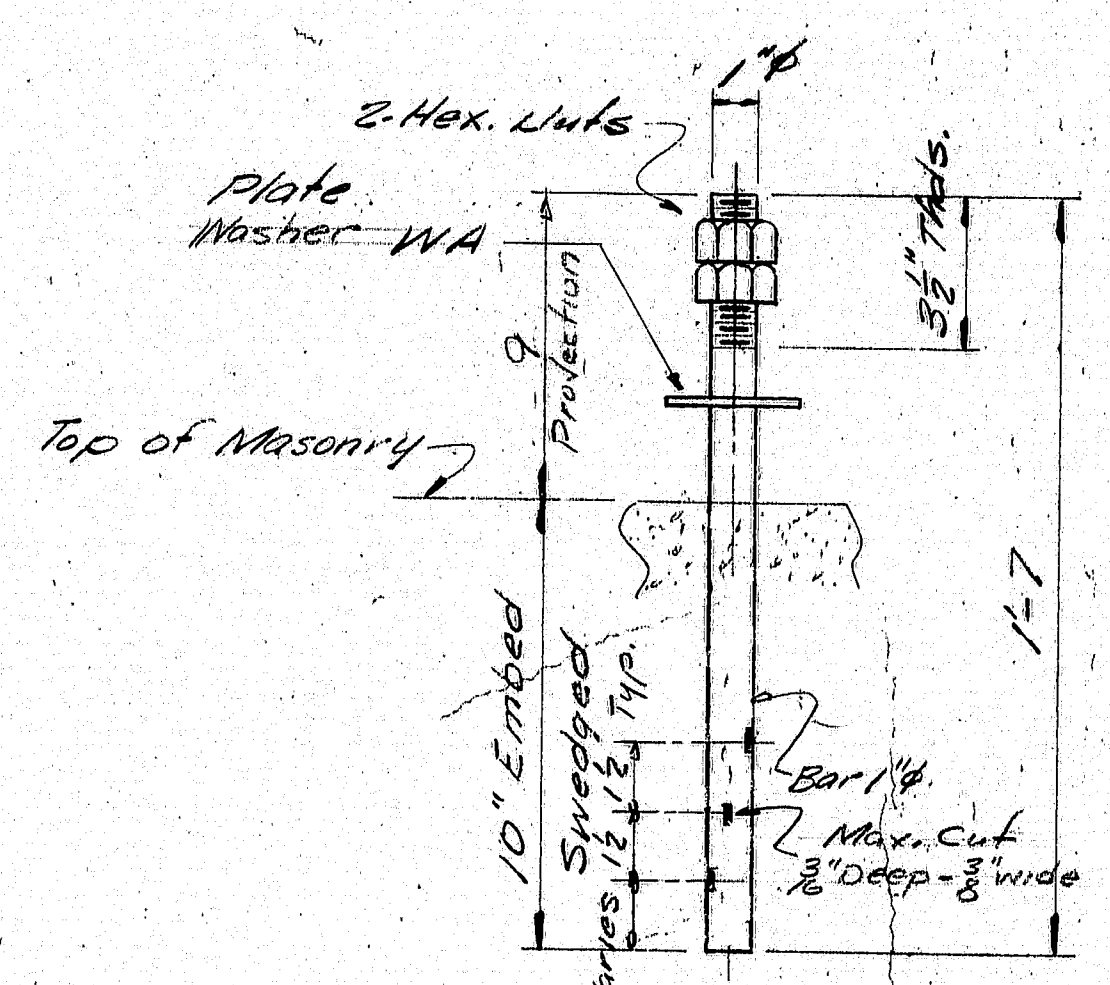 1"ø
2-Hex. Nuts
Plate
Washer WA
3 1/2" Thds.
9
Projection
Top of Masonry
1'-7
10" Embed
Swedged
1 1/2 1 1/2 Typ.
Varies
Bar 1"ø.
Max. Cut
3/16" Deep - 3/8" wide